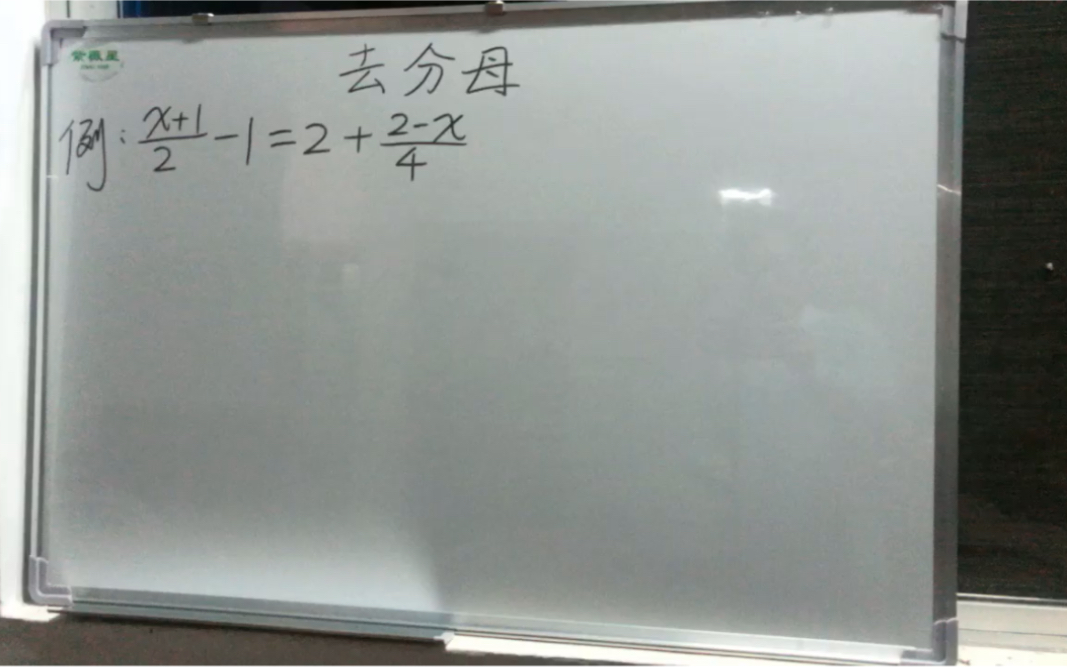 紫薇星
去分母
例: \frac{x+1}{2} - 1 = 2 + \frac{2-x}{4}